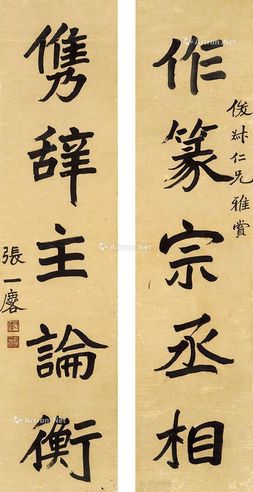 作篆宗丞相
俊叔仁兄雅賞
雋辞主論衡
張一麐